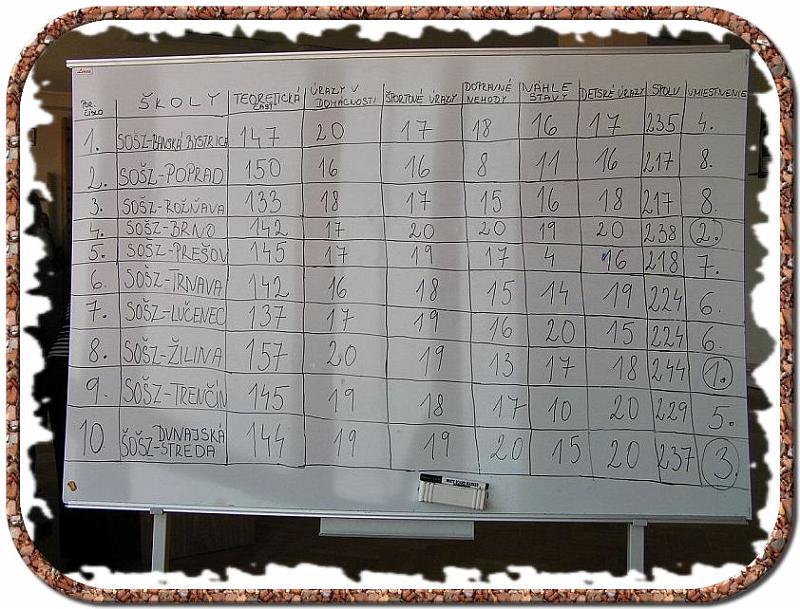 POR. ČÍSLO ŠKOLY TEORETICKÁ ČASŤ ÚRAZY V DOMÁCNOSTI ŠPORTOVÉ ÚRAZY DOPRAVNÉ NEHODY NÁHLE STAVY DETSKÉ ÚRAZY SPOLU UMIESTNENIE
1. SOŠZ-BANSKÁ BYSTRICA 147 20 17 18 16 17 235 4.
2. SOŠZ-POPRAD 150 16 16 8 11 16 217 8.
3. SOŠZ-ROŽŇAVA 133 18 17 15 16 18 217 8.
4. SOŠZ-BRNO 142 17 20 20 19 20 238 2.
5. SOŠZ-PREŠOV 145 17 19 17 4 16 218 7.
6. SOŠZ-TRNAVA 142 16 18 15 14 19 224 6.
7. SOŠZ-LUČENEC 137 17 19 16 20 15 224 6.
8. SOŠZ-ŽILINA 157 20 19 13 17 18 244 1.
9. SOŠZ-TRENČÍN 145 19 18 17 10 20 229 5.
10 ŠOŠZ-DUNAJSKÁ STREDA 144 19 19 20 15 20 237 3.